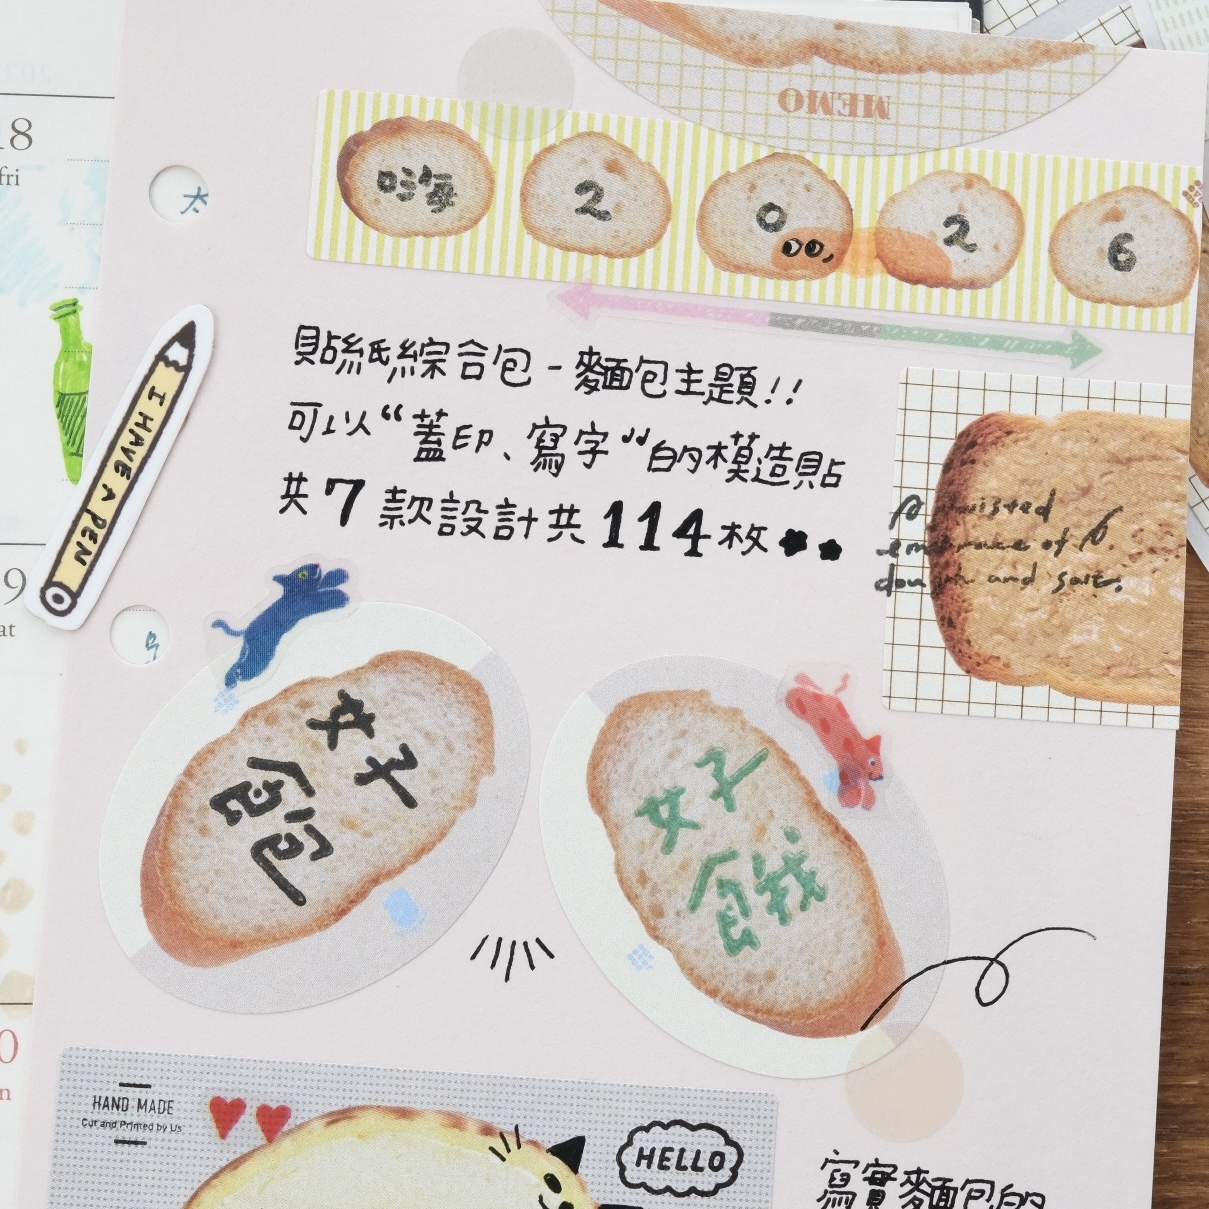 MEMO
嗨 2 0 2 6
18
fri
太
I HAVE A PEN
貼紙綜合包-麵包主題!!
可以“蓋印、寫字”的模造貼
共7款設計共114枚
A twisted
embrace of
dough and salt.
9
at
好
飽
好
餓
0
n
HAND MADE
Cut and Printed by Us
HELLO
寫實麵包的